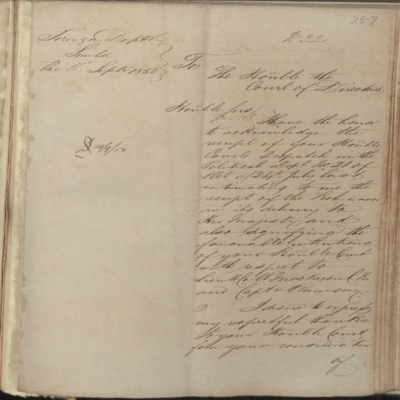 257
Foreign Dept
Simla
The 11th Sept 1850
No 22
To
The Honble the
Court of Directors
Honble Sirs,
I have the honor
to acknowledge the
receipt of your Honble
Courts Despatch in the
Political Dept No 21 of
1850 d/ 24th July last,
intimating to me the
receipt of the Koh-i-noor
and its delivery to
Her Majesty and
also signifying the
favorable intentions
of your Honble Court
with respect to
Lieut Col Mackeson C.B.
and Captn Ramsay
2 I desire to express
my respectful thanks
to your Honble Court
for your consideration
of